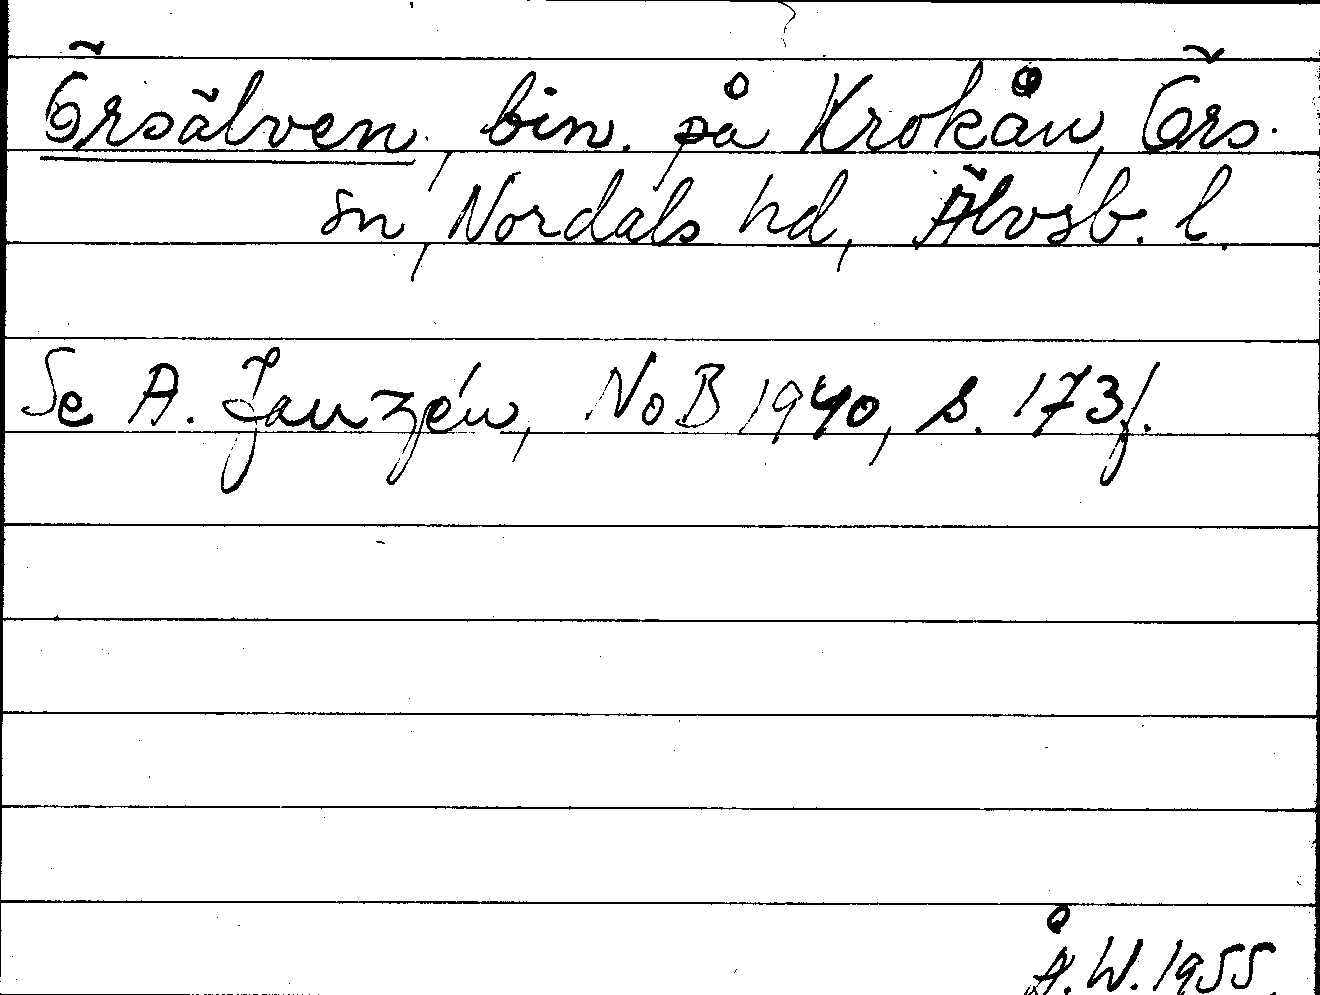 Örsälven, bin. på Krokån, Örs.
sn, Nordals hd, Älvsb. l.
Se A. Janzén, NoB 1940, s. 173f.
Å.W. 1955.